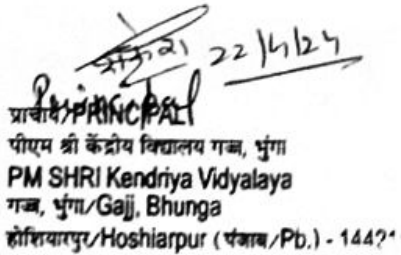 22/4/24
Principal
प्राचार्य/PRINCIPAL
पीएम श्री केंद्रीय विद्यालय गज्ज, भुंगा
PM SHRI Kendriya Vidyalaya
गज्ज, भुंगा/Gajj, Bhunga
होशियारपुर/Hoshiarpur (पंजाब/Pb.) - 14421